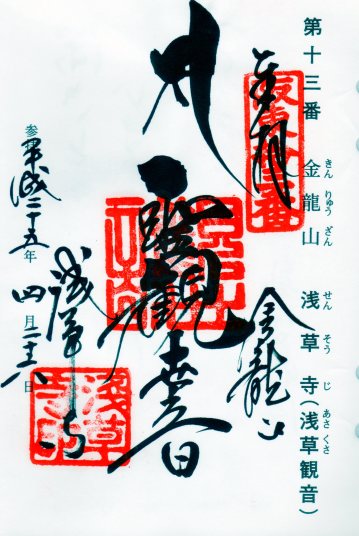 第十三番 金龍山 浅草寺(浅草観音)
きん りゅう ざん せん そう じ あさ くさ
奉拝
坂東十三番
金龍山
聖観世音
浅草寺
浅草寺印
参
平成二十五年
四月二十六日